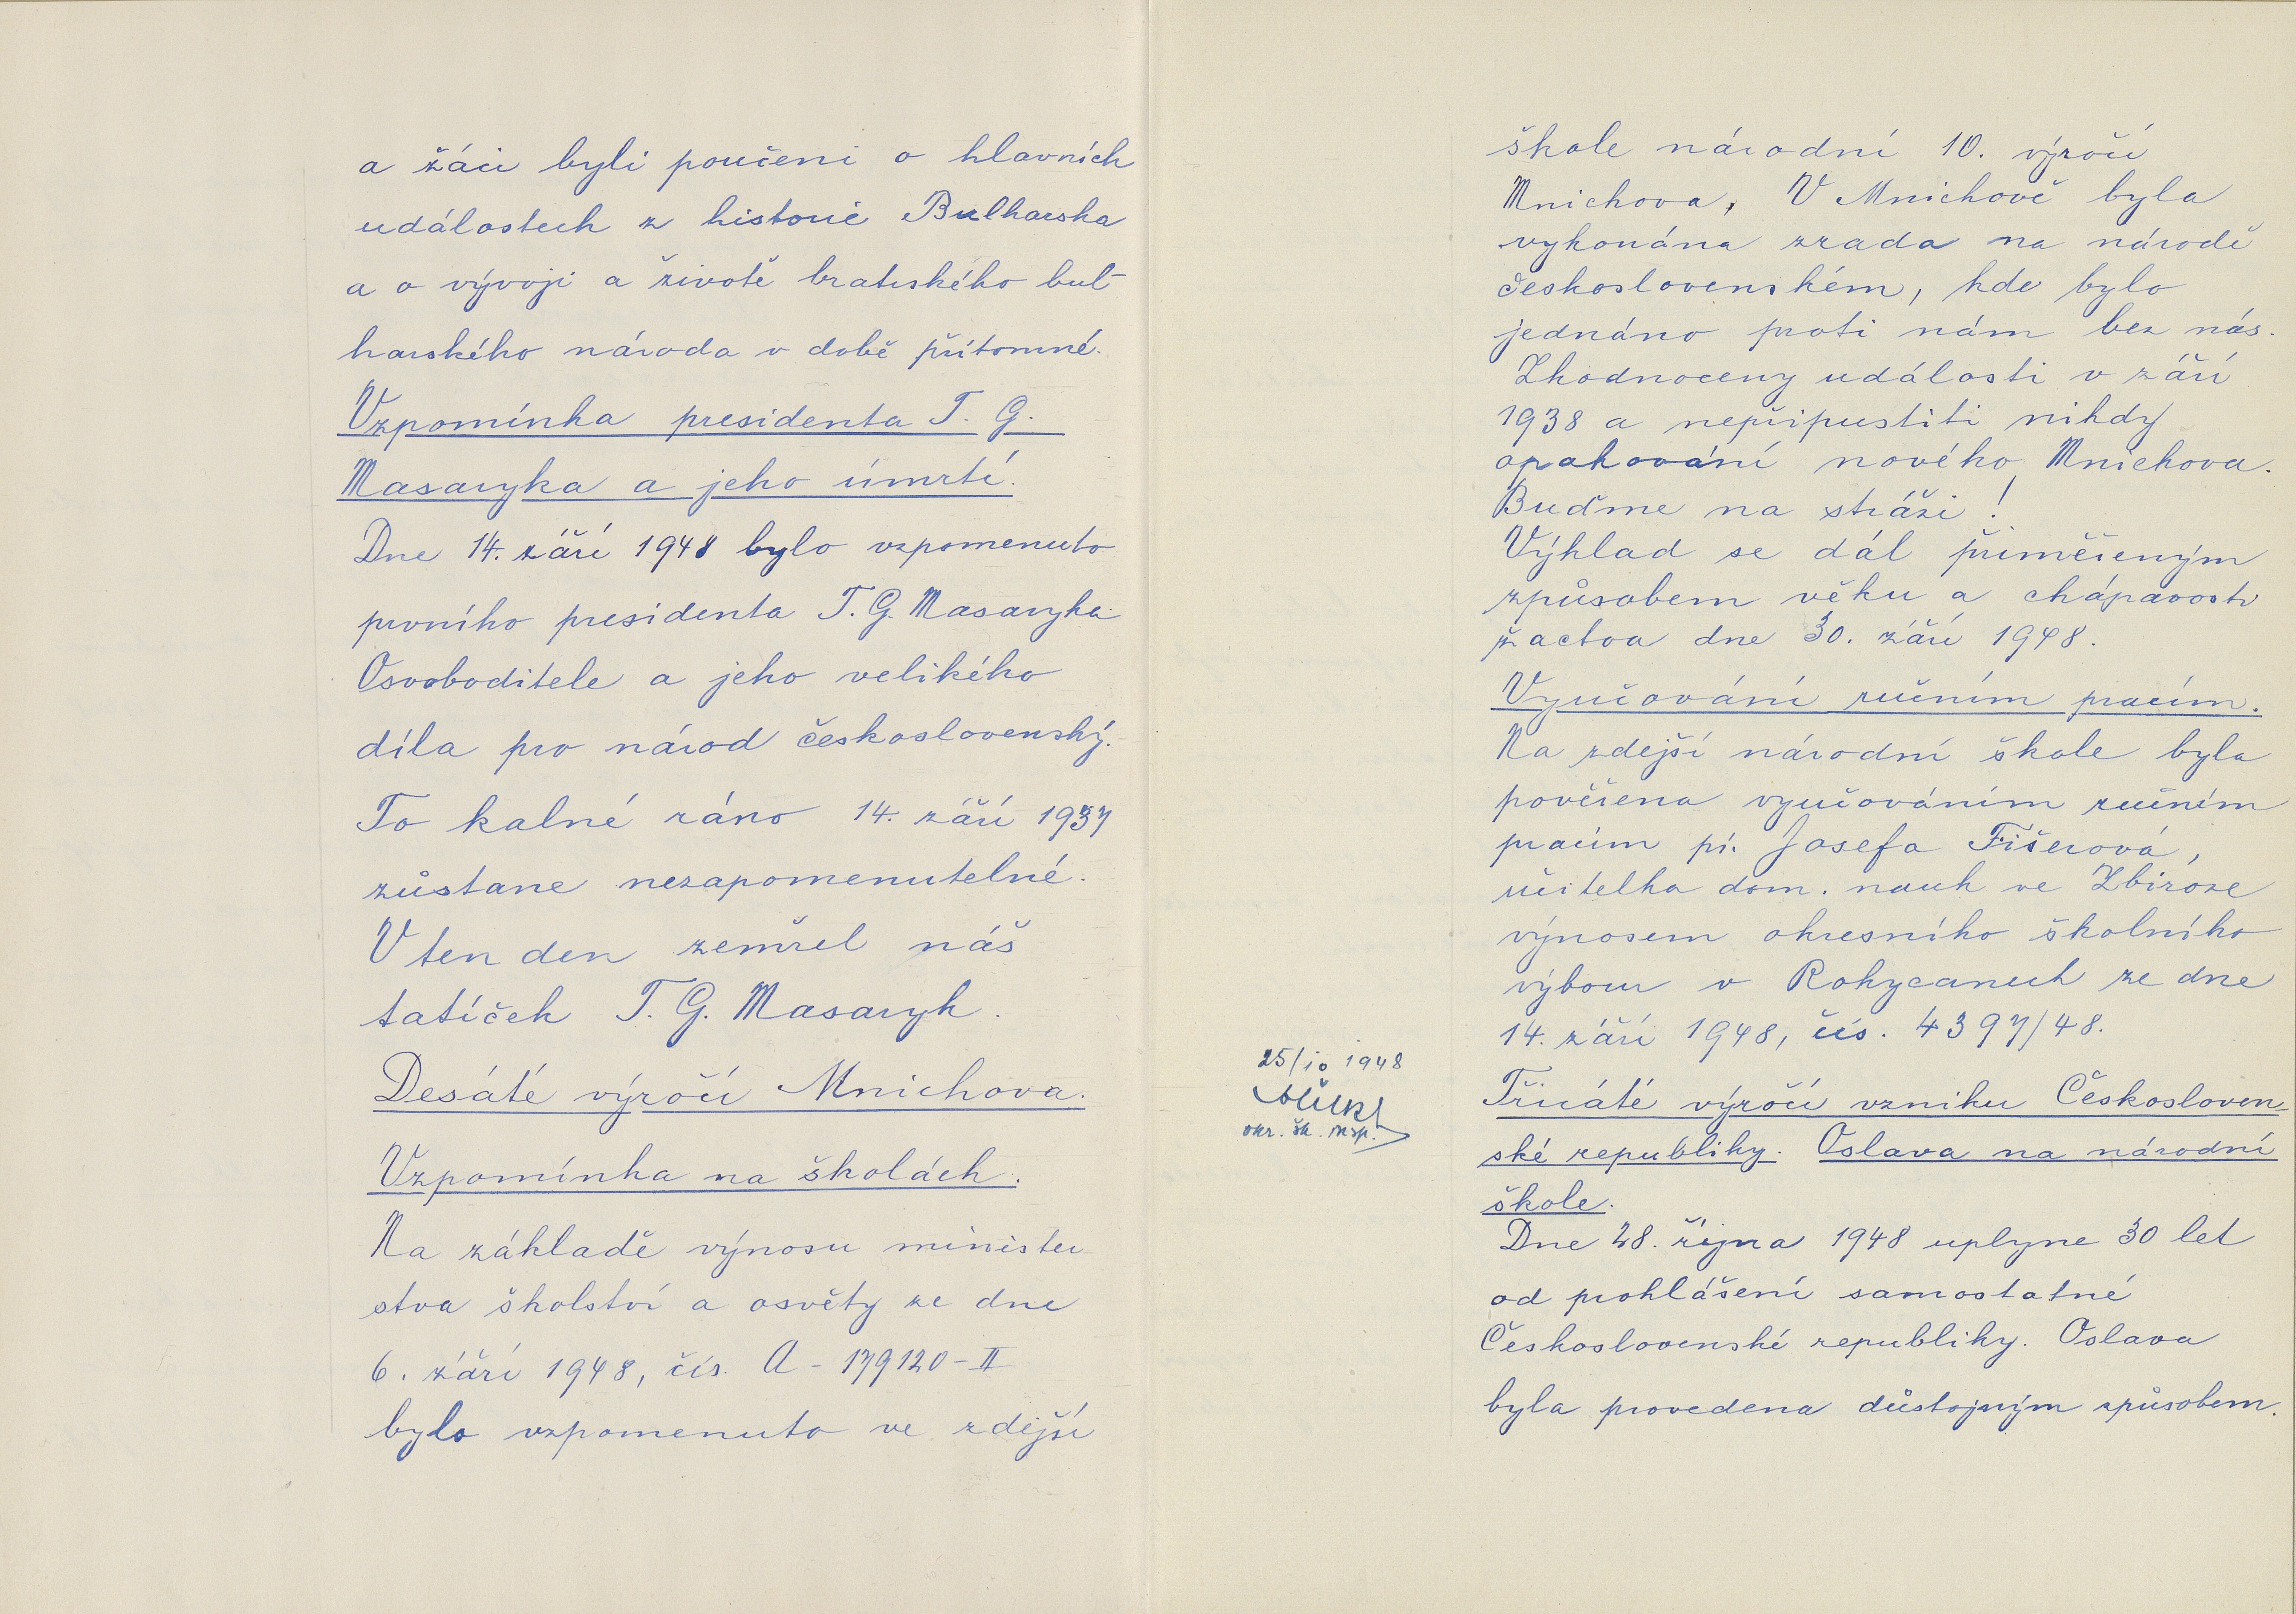 a žáci byli poučeni o hlavních
událostech z historie Bulharska
a o vývoji a životě bratrského bul-
harského národa v době přítomné.
Vzpomínka presidenta T. G.
Masaryka a jeho úmrtí.
Dne 14. září 1948 bylo vzpomenuto
prvního presidenta T. G. Masaryka
Osvoboditele a jeho velikého
díla pro národ československý.
To kalné ráno 14. září 1937
zůstane nezapomenutelné.
V ten den zemřel náš
tatíček T. G. Masaryk.
Desáté výročí Mnichova.
Vzpomínka na školách.
Na základě výnosu minister-
stva školství a osvěty ze dne
6. září 1948, čís. A - 179120 - II
bylo vzpomenuto ve zdejší
škole národní 10. výročí
Mnichova, V Mnichově byla
vykonána zrada na národě
československém, kde bylo
jednáno proti nám bez nás.
Zhodnoceny události v září
1938 a nepřipustiti nikdy
opakování nového Mnichova.
Buďme na stráži!
Výklad se dál přiměřeným
způsobem věku a chápavosti
žactva dne 30. září 1948.
Vyučování ručním pracím.
Na zdejší národní škole byla
pověřena vyučováním ručním
pracím pí. Josefa Fišerová,
učitelka dom. nauk ve Zbiroze
výnosem okresního školního
výboru v Rokycanech ze dne
14. září 1948, čís. 4397/48.
25/10 1948
okr. šk. insp.
Třicáté výročí vzniku Českosloven-
ské republiky. Oslava na národní
škole.
Dne 28. října 1948 uplyne 30 let
od prohlášení samostatné
Československé republiky. Oslava
byla provedena důstojným způsobem.